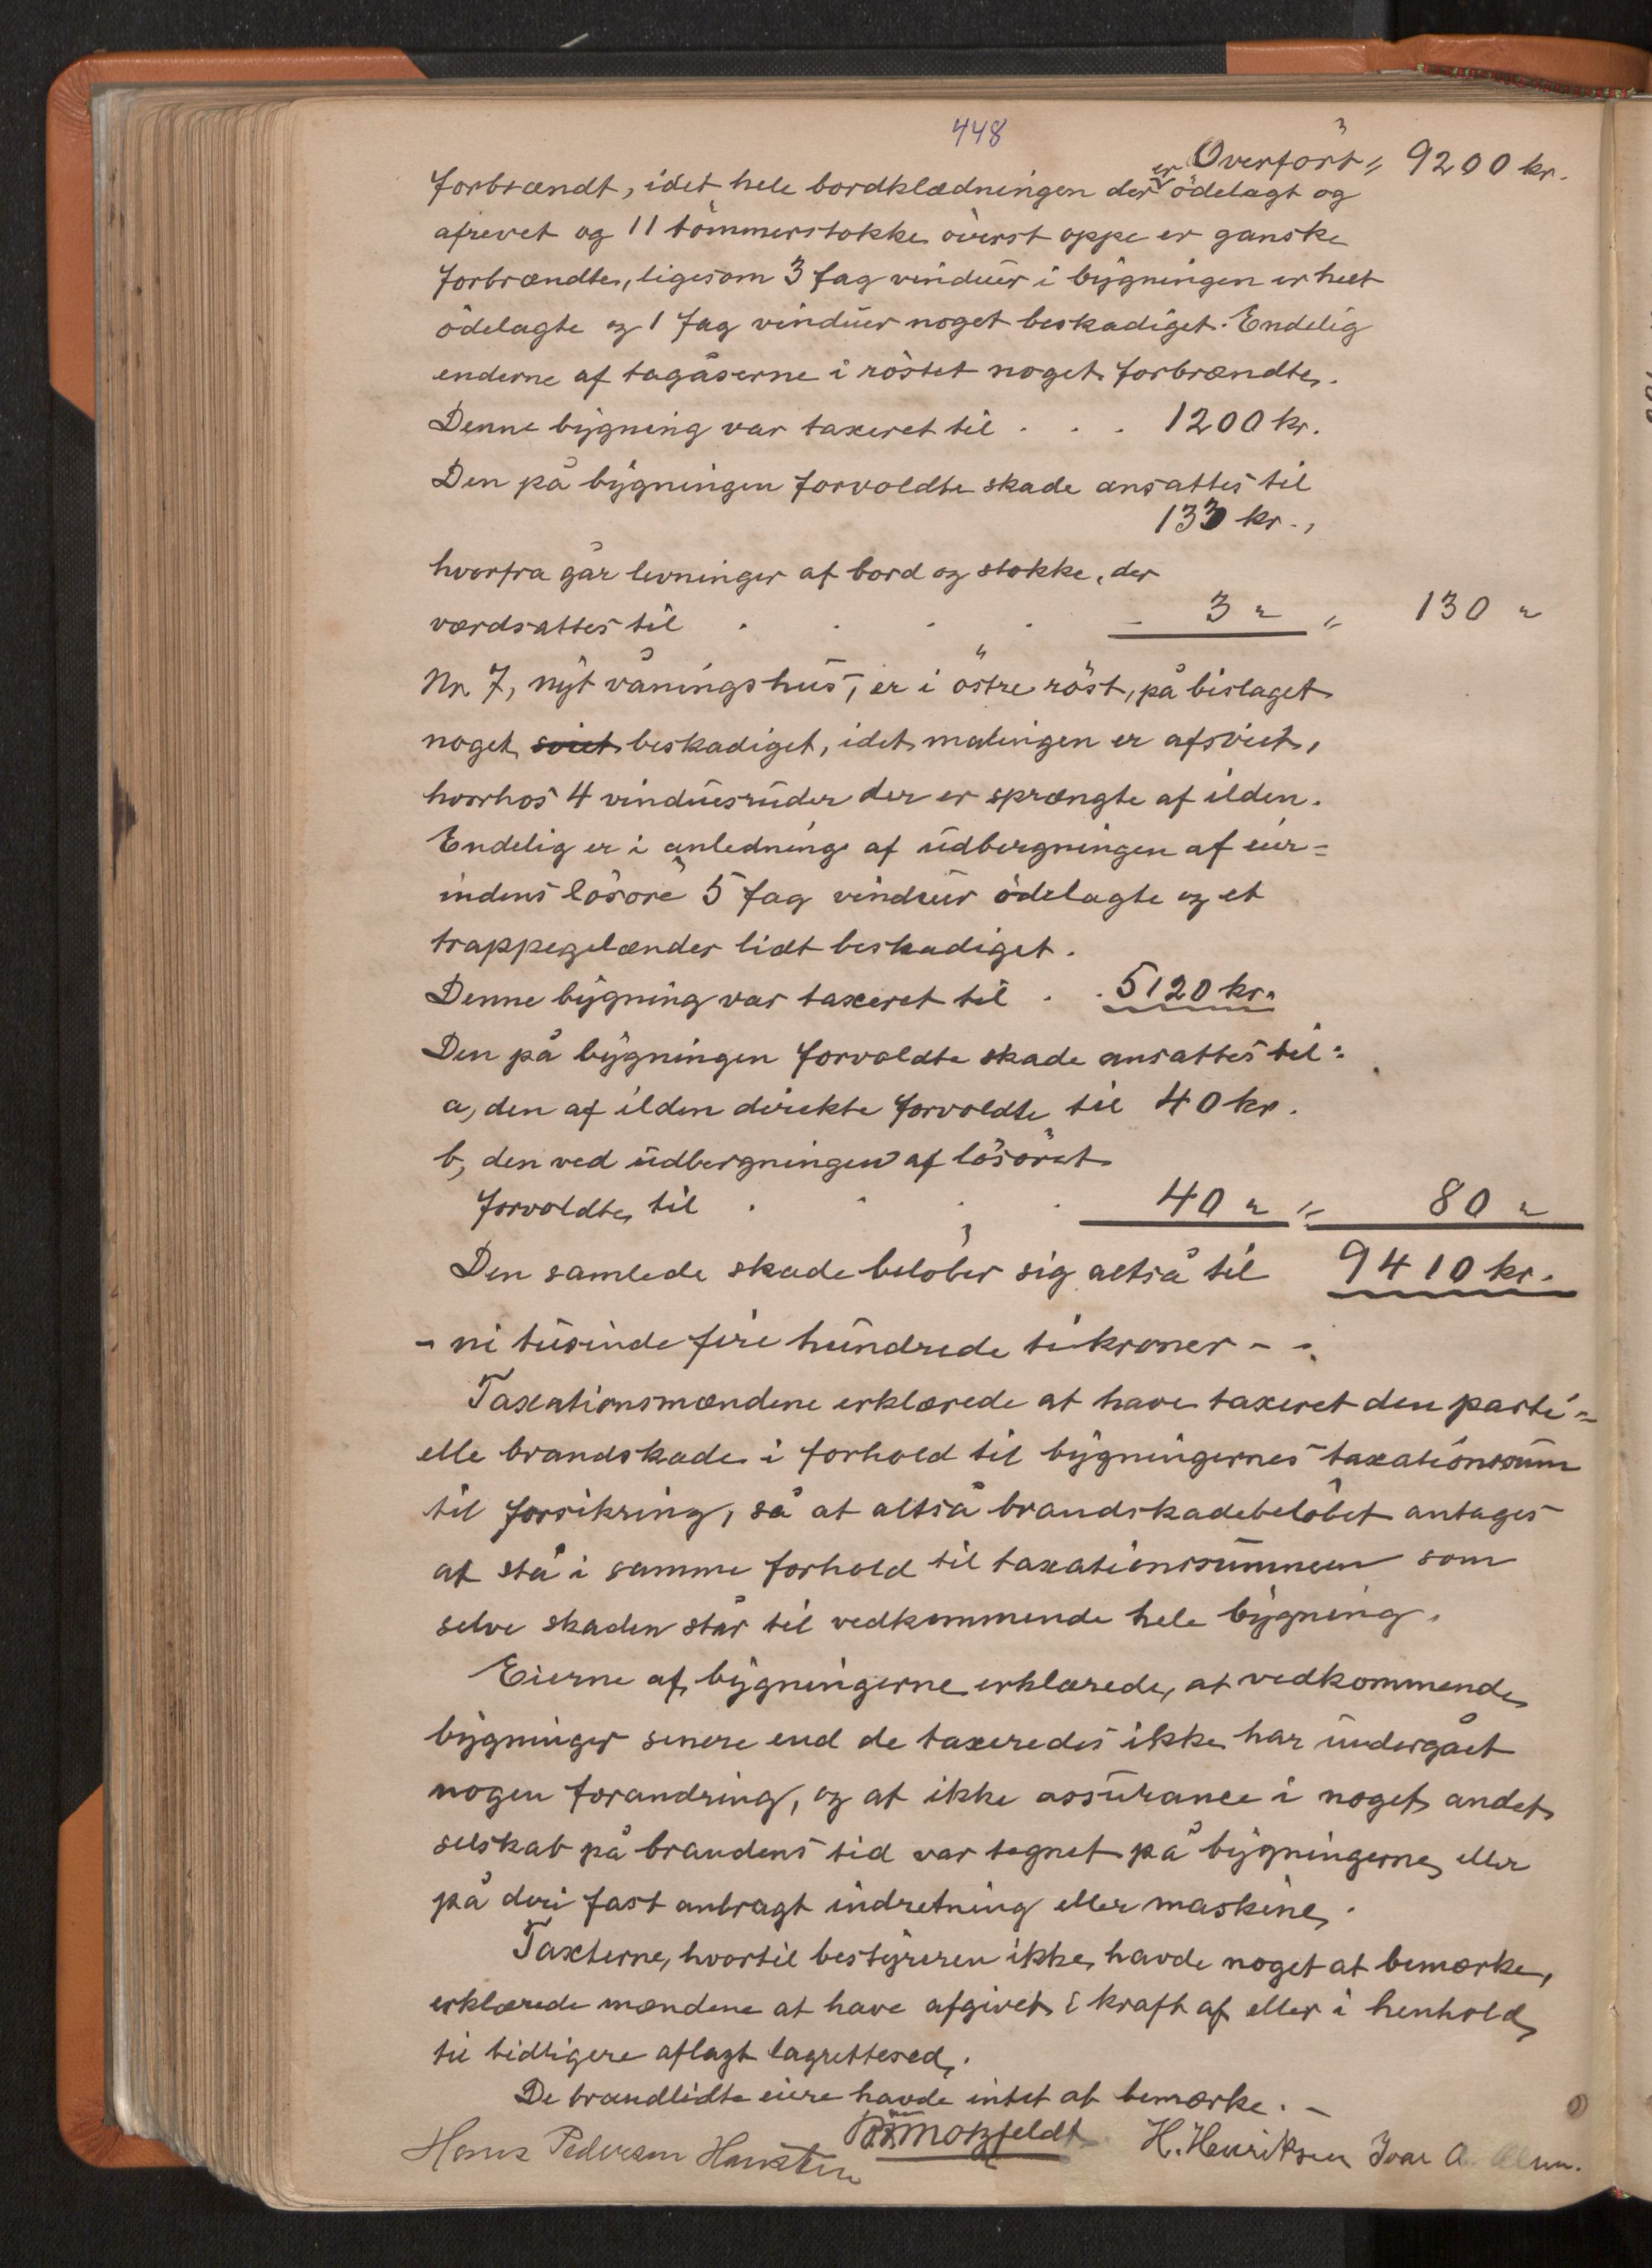 448
Overført „ 9200 kr.
forbrændt, idet hele bordklædningen der er ödelagt og
afrevet og 11 tömmerstokke överst oppe er ganske
forbrændte, ligesom 3 fag vinduer i bygningen er helt
ödelagte og 1 fag vinduer noget beskadiget. Endelig
enderne af tagåserne i röstet noget forbrændte.
Denne bygning var taxeret til . . . 1200 kr.
Den på bygningen forvoldte skade ansattes til
133 kr.,
hvorfra går levninger af bord og stokke, der
værdsattes til . . . . - 3 „ „ 130 „
Nr. 7, nyt våningshus, er i östre röst, på bislaget
noget sviet beskadiget, idet malingen er afsviet,
hvorhos 4 vinduesruder der er sprængte af ilden.
Endelig er i anledning af udbergningen af eier-
indens lösöre 5 fag vinduer ödelagte og et
trappegelænder lidt beskadiget.
Denne bygning var taxeret til . . 5120 kr.
Den på bygningen forvoldte skade ansattes til:
a, den af ilden direkte forvoldte til 40 kr.
b, den ved udbergningen af lösöret
forvoldte til . . . . 40 „ „ 80 „
Den samlede skade belöber sig altså til 9410 kr.
- ni tusinde fire hundrede ti kroner - -.
Taxationsmændene erklærede at have taxeret den parti-
elle brandskade i forhold til bygningernes taxationssum
til forsikring, så at altså brandskadebelöbet antages
at stå i samme forhold til taxationssummen som
selve skaden står til vedkommende hele bygning.
Eierne af bygningerne erklærede, at vedkommende
bygninger senere end de taxeredes ikke har undergået
nogen forandring, og at ikke assurance i noget andet
selskab på brandens tid var tegnet på bygningerne eller
på deri fast anbragt indretning eller maskine.
Taxterne, hvortil bestyreren ikke havde noget at bemærke,
erklærede mændene at have afgivet i kraft af eller i henhold
til tidligere aflagt lagrettesed.
De brandlidte eiere havde intet at bemærke. -
Hans Pedersen Motzfeldt H. Henriksen Ivar A.